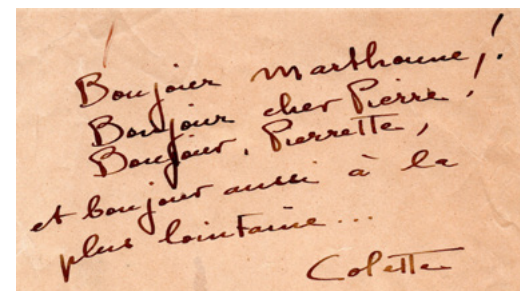 Bonjour Marthoune !
Bonjour cher Pierre !
Bonjour, Pierrette,
et bonjour aussi à la
plus lointaine...
Colette